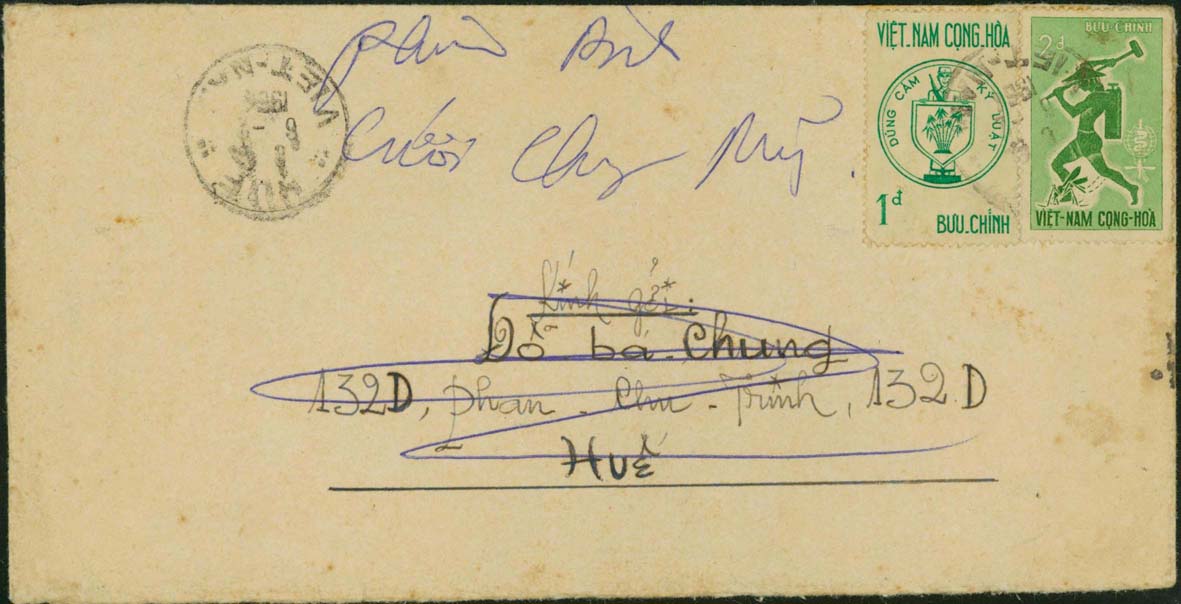 VIỆT-NAM
1964
6 -
HUẾ
cưới Chung Mỹ.
VIỆT-NAM CỘNG-HÒA
DŨNG CẢM KỶ LUẬT
1đ
BƯU-CHÍNH
BƯU-CHÍNH
2đ
VIỆT-NAM CỘNG-HÒA
Kính gởi:
Đỗ-bá-Chung
132D, Phan-Chu-Trinh, 132D
Huế